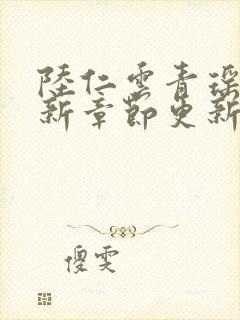 陸仁雲青瑤
新章節更新
傻雯